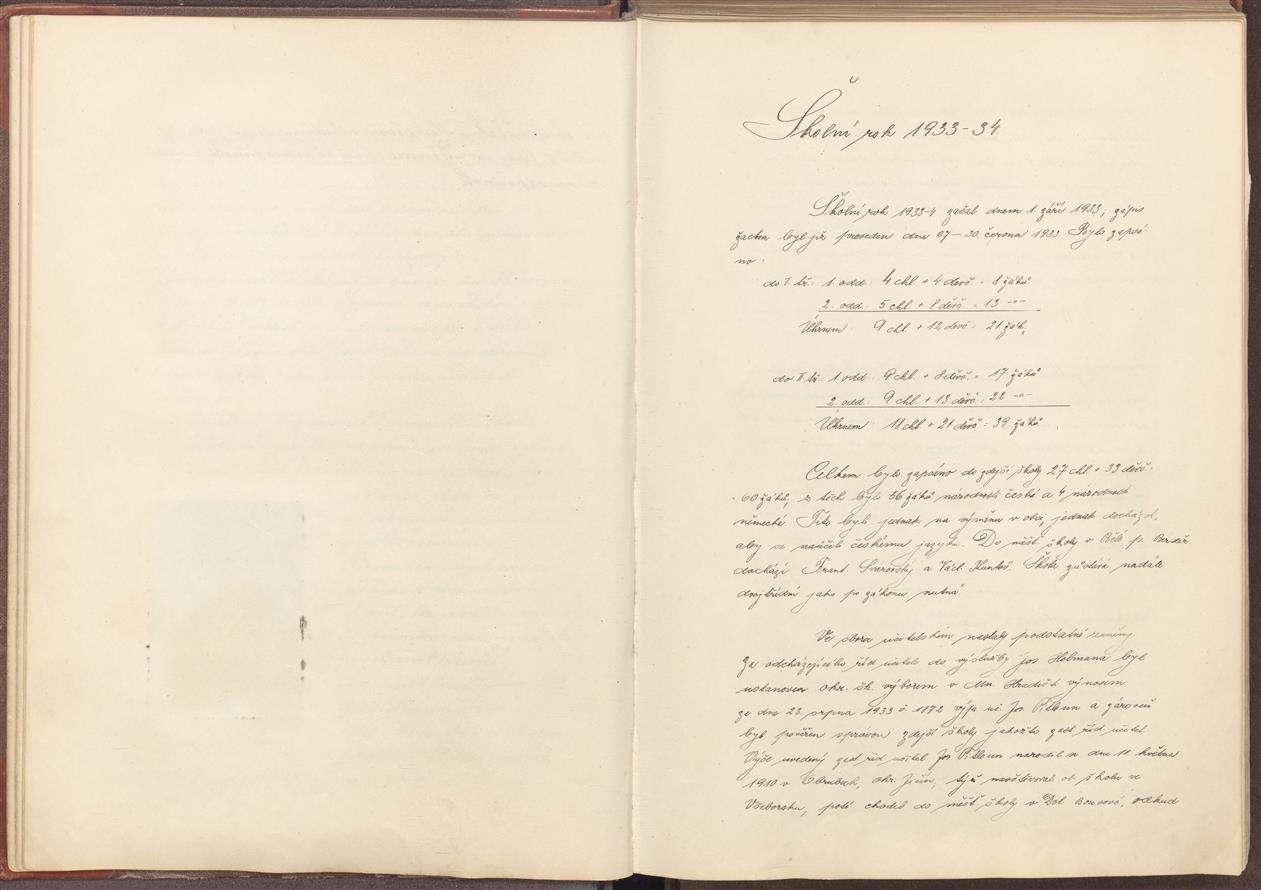 Školní rok 1933-34.
Školní rok 1933-4 začal dnem 1. září 1933, zápis
žactva byl již proveden dne 27-30. června 1933. Bylo zapsá-
no:
do I. tř.: 1 odd.: 4 chl + 4 děvč. = 8 žáků
2. odd. 5 chl. + 8 děvč. = 13 -"-
Úhrnem: 9 chl. + 12 děvč. = 21 žák,
do II tř.: 1 odd. 9 chl. + 8 děvč. = 17 žáků
2. odd.: 9 chl + 13 děvč. = 22 -"-
Úhrnem: 18 chl + 21 děvč = 39 žáků.
Celkem bylo zapsáno do zdejší školy 27 chl + 33 děvč.
= 60 žáků, z těch bylo 56 žáků národnosti české a 4 národnosti
německé. Tito byli jednak na výměnu v obci, jednak docházeli,
aby se naučili českému jazyku. Do měšť. školy v Bělé p. Bezděz
dochází Frant. Svárovský a Václ. Kuntoš. Škola zůstává nadále
dvojtřídní jako po zákonu nutná.
Ve sboru učitelském nastaly podstatné změny.
Za odcházejícího říd učitele do výslužby Jos Holmana byl
ustanoven okr. šk. výborem v Mn. Hradišti výnosem
ze dne 22. srpna 1933 č 1872 výp. uč. Jos a zároveň
byl pověřen správou zdejší školy jakožto zast říd učitel.
Výše uvedený zast říd učitel Jos narodil se dne 11. května
1910 v okr. Jičín, týž navštěvoval ob školu ve
Všeborsku, poté chodil do měšť školy v Dol Bousově, odkud